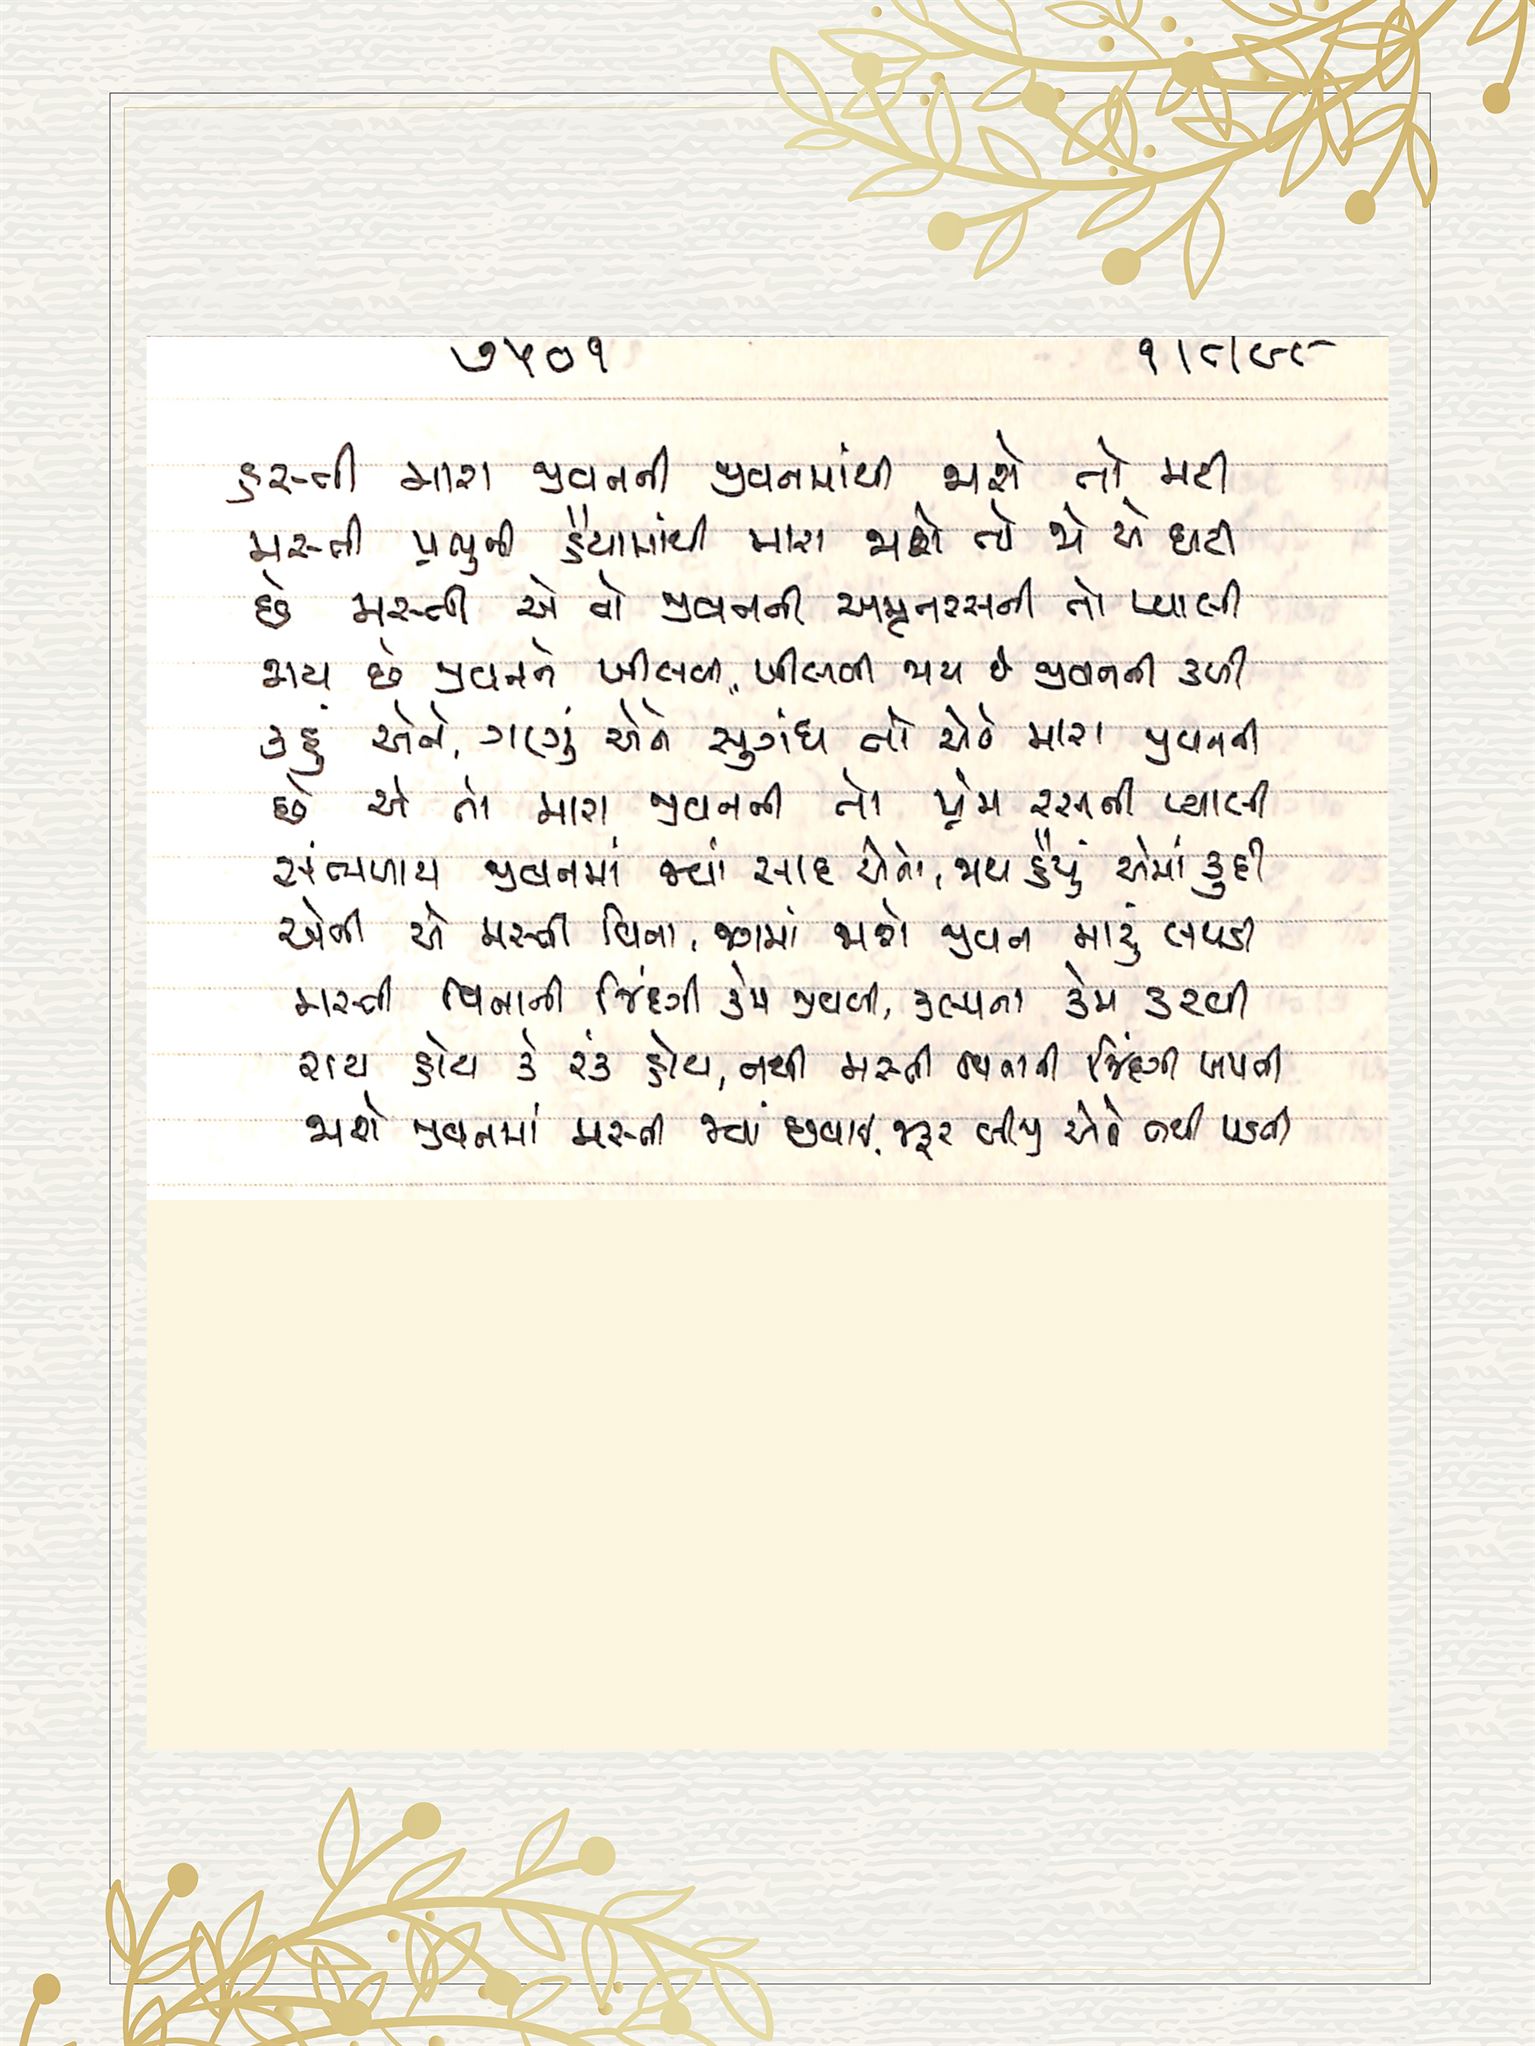 ૭૫૦૧ ૧/૮/૯૮
હસ્તી મારા જીવનની જીવનમાંથી જાશે તો મટી
મસ્તી પ્રભુની હૈયામાંથી મારા જાશે તો જો એ ઘટી
છે મસ્તી એ તો જીવનની અમૃતરસની તો પ્યાલી
જાય છે જીવનને ખીલવી, ખીલવી જાય છે જીવનની કળી
કહું એને, ગણું એને સુગંધ તો એને મારા જીવનની
છે એ તો મારા જીવનની તો પ્રેમ રસની પ્યાલી
સંભળાય જીવનમાં જ્યાં સાદ એનો, જાય હૈયું એમાં કુદી
એની એ મસ્તી વિના, જગમાં જાશે જીવન મારું લપડી
મસ્તી વિનાની જિંદગી કેમ જીવવી, કલ્પના કેમ કરવી
રાય હોય કે રંક હોય, નથી મસ્તી વિનાની જિંદગી ખપતી
જાશે જીવનમાં મસ્તી જ્યાં છવાઈ, જરૂર બીજી એને નથી પડતી